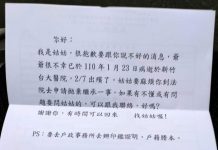 您好：
我是姑姑，很抱歉要跟你說不好的消息，爺
爺很不幸已於110年1月23日病逝於新竹
台大醫院，2/7出殯了，姑姑要麻煩你到法
院去申請拋棄繼承一事，如果有不懂或有問
題要問姑姑的，可以跟我聯絡，好嗎？
謝謝你，有時間可以回來 找姑姑喔！
PS：要去戶政事務所去辦印鑑證明、戶籍謄本。